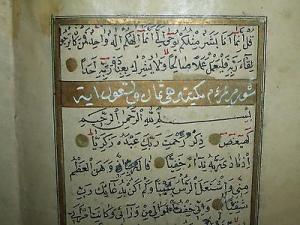 قل انما انا بشر مثلكم يوحى الي انما الهكم اله واحد فمن كان يرجو
لقاء ربه فليعمل عملا صالحا ولا يشرك بعبادة ربه احدا
سورة مريم مكية وهي ثمان وتسعون اية
بسم الله الرحمن الرحيم
كهيعص ذكر رحمت ربك عبده زكريا
اذ نادى ربه نداء خفيا قال رب اني وهن العظم
مني واشتعل الراس شيبا ولم اكن بدعائك رب
شقيا واني خفت الموالي من ورائي وكانت امراتي